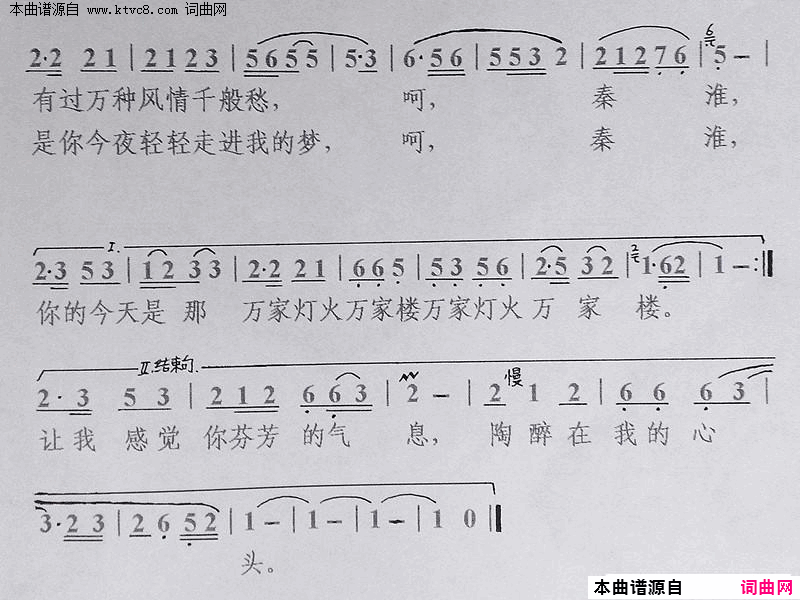 本曲谱源自 www.ktvc8.com 词曲网
2·2 2 1 | 2 1 2 3 | 5 6 5 5 | 5·3 | 6·5 6 | 5 5 3 2 | 2 1 2 7 6 | 6 5 – |
有过万种风情千般愁, 呵, 秦 淮,
是你今夜轻轻走进我的梦, 呵, 秦 淮,
I.
2·3 5 3 | 1 2 3 3 | 2·2 2 1 | 6 6 5 | 5 3 5 6 | 2·5 3 2 | 2 1·6 2 | 1 – :||
你的今天是 那 万家灯火万家楼万家灯火 万 家 楼。
II. 结束句.
慢
2· 3 5 3 | 2 1 2 6 6 3 | 2 – | 2 1 2 | 6 6 6 3 |
让我 感觉 你芬芳 的气 息, 陶 醉 在 我 的 心
3·2 3 | 2 6 5 2 | 1 – | 1 – | 1 – | 1 0 ||
头。
本曲谱源自 词曲网